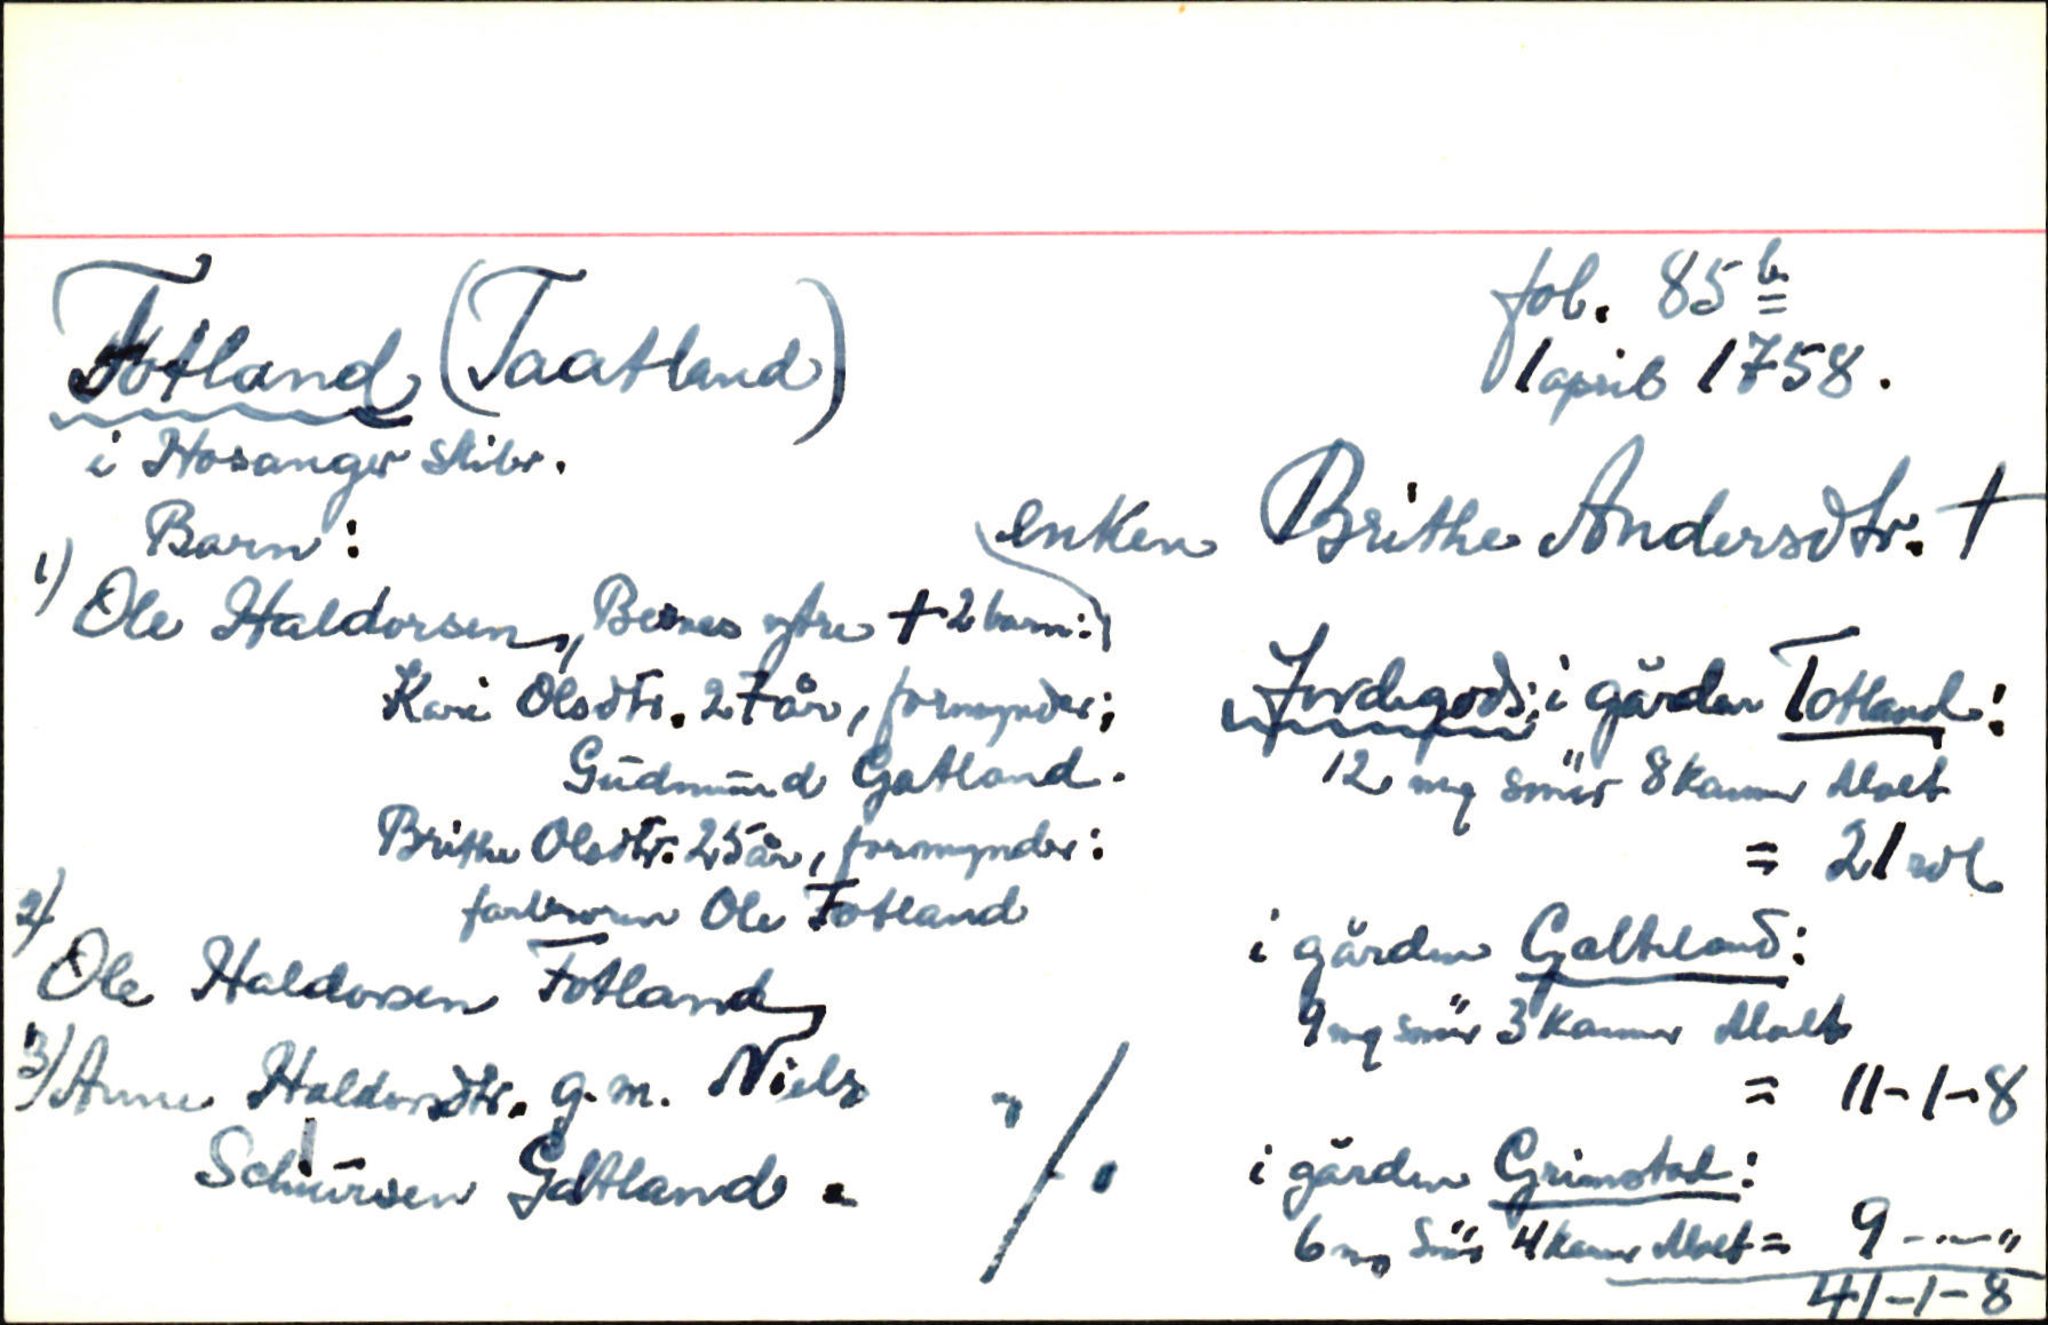 fol. 85 b
1 april 1758.
Totland (Taatland)
i Hosanger skibr.
enken Brithe Andersdtr. †
Barn:
1) Ole Haldorsen, Bernes ytre † 2 barn:
Kari Olsdtr. 27 år, formynder;
Gūdmūnd Gatland.
Brithe Olsdtr. 25 år, formynder:
farbroren Ole Totland
2) Ole Haldorsen Totland
3) Anne Haldorsdtr. g.m. Niels
Schiūrsen Galtland.
Jordegods; i gården Totland:
12 mg smör 8 kanner Malt
= 21 rdl
i gården Galteland:
9 mg smör 3 kanner Malt
= 11-1-8
i gården Grimstad:
6 mg Smör 4 kanner Malt = 9 - " - "
41-1-8
"/.